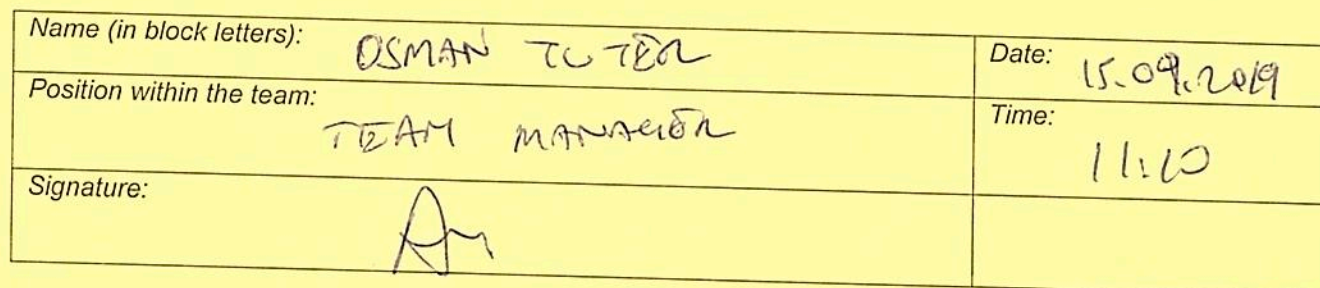 Name (in block letters): OSMAN TUTER
Date: 15.09.2019
Position within the team: TEAM MANAGER
Time: 11:10
Signature: